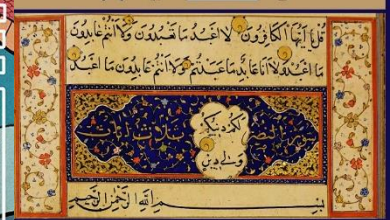 قُلْ يَا أَيُّهَا الْكَافِرُونَ لَا أَعْبُدُ مَا تَعْبُدُونَ وَلَا أَنْتُمْ عَابِدُونَ
مَا أَعْبُدُ وَلَا أَنَا عَابِدٌ مَا عَبَدْتُمْ وَلَا أَنْتُمْ عَابِدُونَ مَا أَعْبُدُ
لَكُمْ دِينُكُمْ
وَلِيَ دِينِ
سورة النصر ثلاث
بِسْمِ اللَّهِ الرَّحْمَنِ الرَّحِيمِ